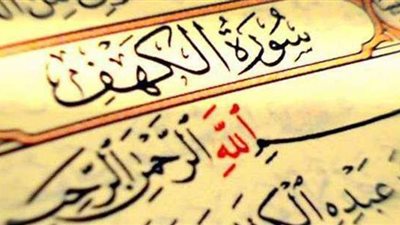 سُورَةُ الكَهْفِ
سمِ اللَّهِ الرَّحْمَٰنِ الرَّحِيمِ
عَبْدِهِ الْكِتَ